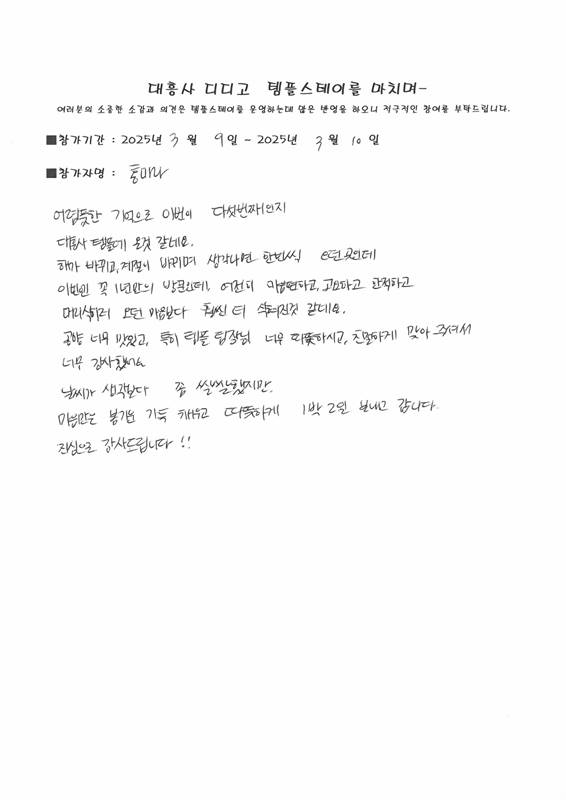 대흥사 디디고 템플스테이를 마치며-
여러분의 소중한 소감과 의견은 템플스테이를 운영하는데 많은 반영을 하오니 적극적인 참여를 부탁드립니다.
■참가기간 : 2025년 3 월 9 일 - 2025년 3 월 10 일
■참가자명 :
어렴풋한 기억으로 이번이 다섯번째인지
대흥사 템플에 온것 같네요.
해가 바뀌고, 계절이 바뀌며 생각나면 한번씩 오던곳인데
이번엔 꼭 1년만의 방문인데, 여전히 편하고, 고요하고 한적하고
머리식히러 오던 마음보다 훨씬 더 같네요.
공양 너무 맛있고, 특히 템플 팀장님 너무 따뜻하시고, 친절하게 맞아 주셔서
너무 감사했어요
날씨가 생각보다 좀 쌀쌀했지만,
마음만은 봄기운 가득 채우고 따뜻하게 1박 2일 보내고 갑니다.
진심으로 감사드립니다 !!